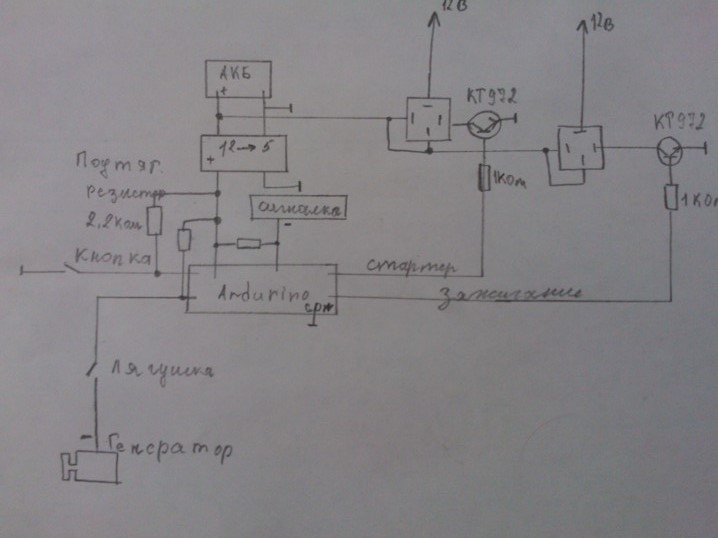 12В
12В
АКБ
+
КТ972
КТ972
+ 12→5
Подтяг.
резистор
2,2Ком
сигналка
-
1Ком
1КОм
Кнопка
стартер
Ardurino
GPN
зажигание
Лягушка
- Генератор